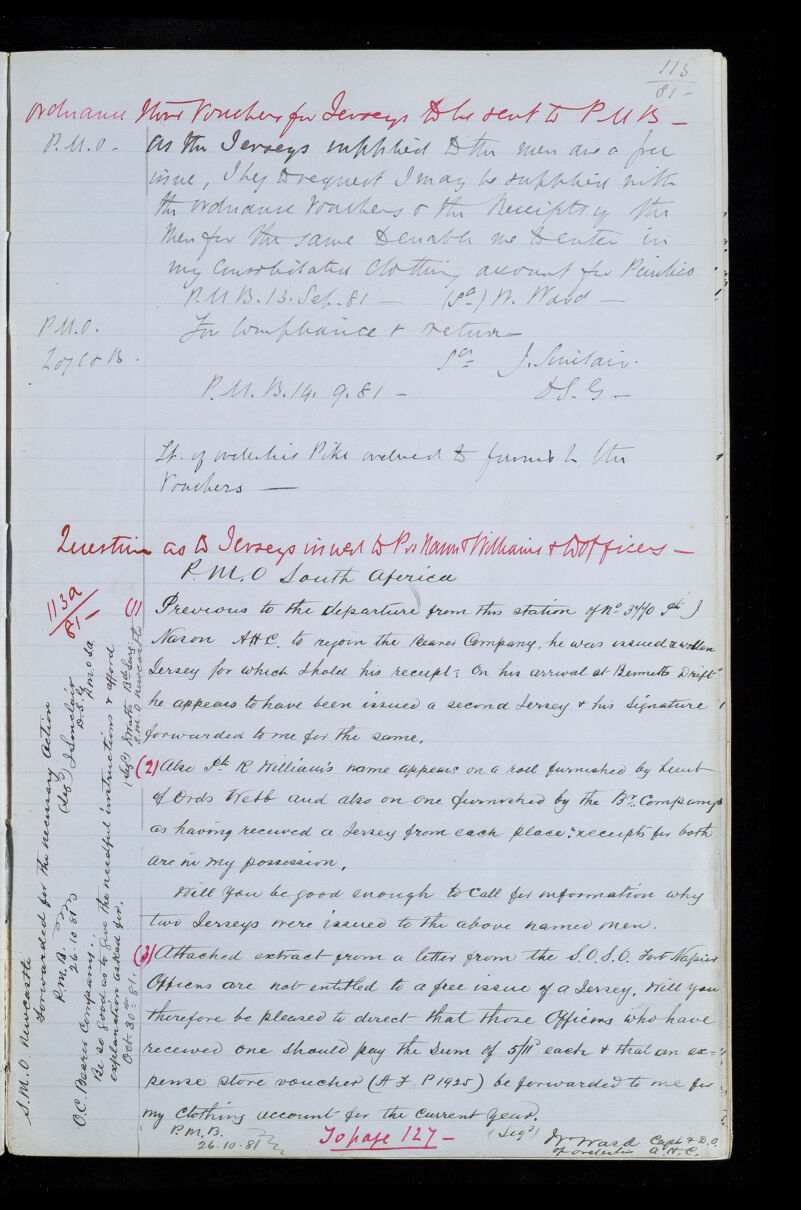 113
81-
Ordnance Store Vouchers for Jerseys to be sent to P.M.B-
P.M.O-
As the Jerseys supplied to the men are a free
issue, I beg to request I may be supplied with
the Ordnance Vouchers & the Receipts of the
Men for the same to enable me to enter in
my Consolidated Clothing account for
P.M.B. 13. Sep. 81 — (Sd) W. Ward —
P.M.O.
For Compliance & return
Sd J. Sinclair.
P.M.B. 14. 9. 81 -
D.S.G -
Lt. of Orderlies Pike ordered to furnish the
Vouchers —
Question as to Jerseys issued to Pvs Nason & Williams & to Officers —
P.M.O South Africa
113a
81-
(1) Previous to the departure from this station of No 3440 Pte J
Nason AHC. to rejoin the Bearer Company, he was issued a wollen
Jersey for which I hold his receipt: On his arrival at Bennetts Drift
he appears to have been issued a second Jersey & his signature
forwarded to me for the same.
(2) Also Pte R William's name appears on a roll furnished by Lieut
of Ords Webb and also on one furnished by the Br. Company
as having received a Jersey from each place: receipts for both
are in my possession.
Will you be good enough to call for information why
two Jerseys were issued to the above named men.
(3) Attached extract from a letter from the S.O.S.O. Fort Napier
Officers are not entitled to a free issue of a Jersey. Will you
therefore be pleased to direct that those Officers who have
received one should pay the sum of 5/11 each & that an ex=
pense store voucher (A F. P 1925) be forwarded to me for
my Clothing account for the current year.
P.M.B.
26.10.81
To page 127 -
(Sigd) W Ward Capt & D.O.
of Orderlies A.H.C.
S.M.O Newcastle
Forwarded for the necessary action
P.M.B.
26.10.81
(Sigd) J Sinclair
D.S.G
P.M.O SA
O.C. Bearer Company:.
Be so good as to give the needful instructions & afford
explanation asked for.
Oct 30th 81.
S.M.O Newcastle